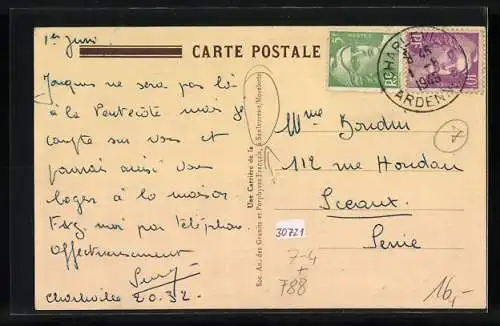 1er Juin
CARTE POSTALE
Jacques ne sera pas là
à la Pentecôte mais je
compte sur vous et
pourrai aussi vous
loger à la maison.
moi par téléphone
Affectueusement
Charleville 20.32
Une Carrière de la
Soc. An. des Granits et Porphyres Français, à
POSTES
5F
CHARLEVILLE
ARDENNES
Mme Boudin
112 rue Houdan
Sceaux
Seine
30721
7-4
+
788
16,-